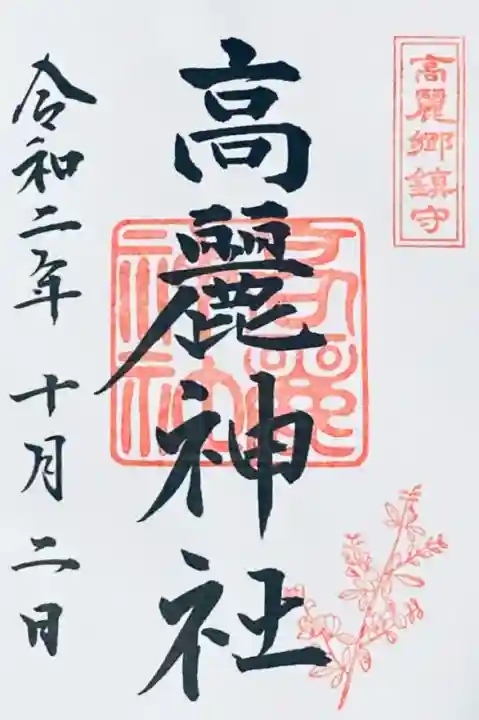 高麗郷鎮守
高麗神社
高麗神社
令和二年 十月 二日